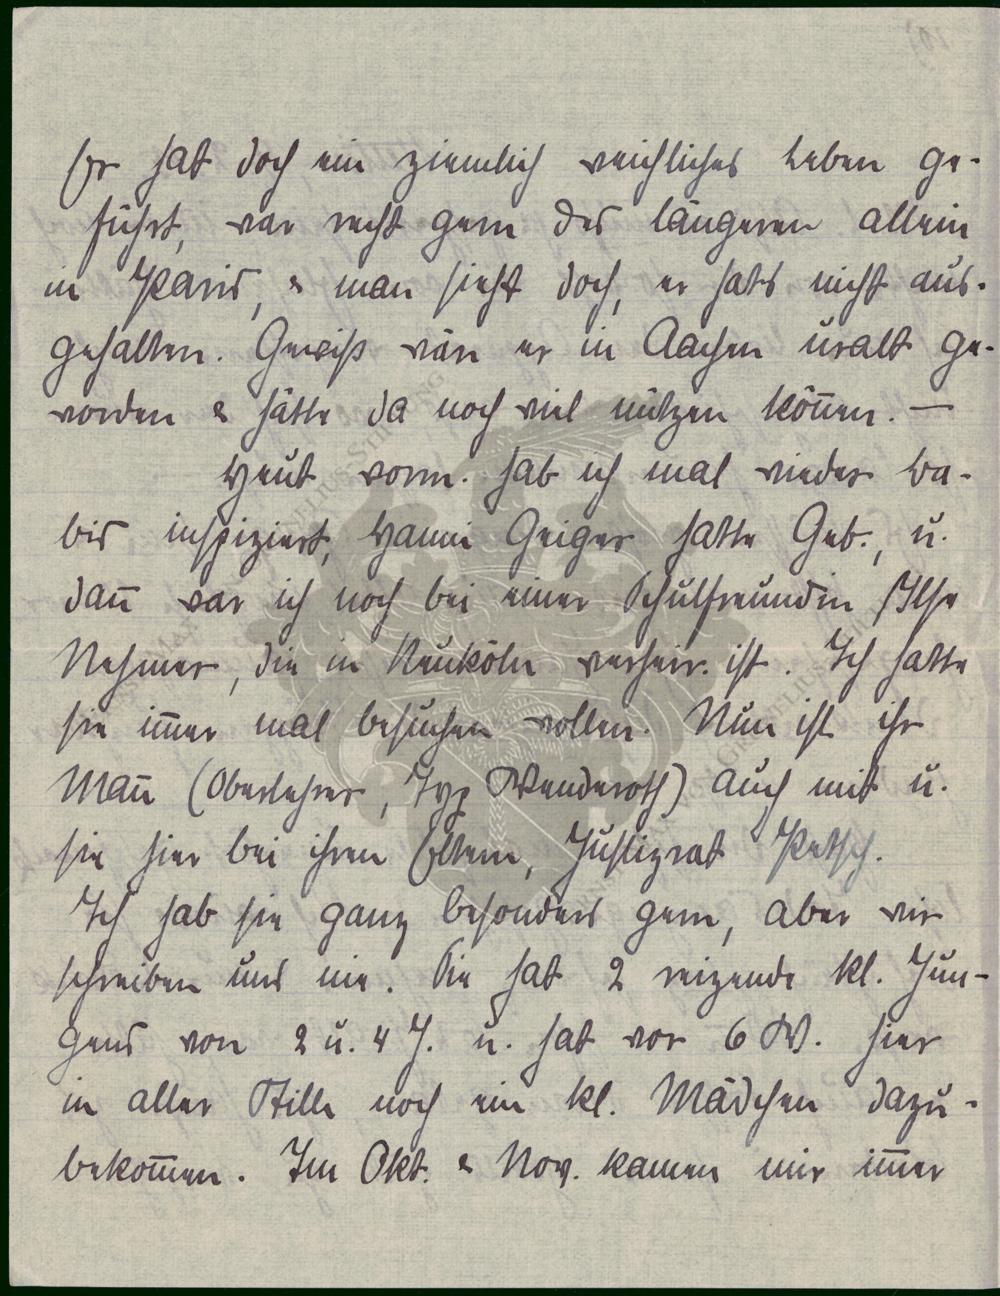 Er hat doch ein ziemlich reichliches Leben ge-
führt, war recht gern des längeren allein
in Paris, & man sieht doch, er hats nicht aus-
gehalten. Gewiß wär er in Aachen uralt ge-
worden & hätte da noch viel nützen können. —
Heut vorm. hab ich mal wieder Ba-
bis inspiziert, Hanni Geiger hatte Geb., u.
dann war ich noch bei einer Schulfreundin, Ilse
Nehmer, die in Neukölln verheir. ist. Ich hatte
sie immer mal besuchen wollen. Nun ist ihr
Mann (Oberlehrer, Typ Wenderoth) auch mit u.
sie hier bei ihren Eltern, Justizrat Petsch.
Ich hab sie ganz besonders gern, aber wir
schreiben uns nie. Sie hat 2 reizende kl. Jun-
gens von 2 u. 4 J. u. hat vor 6 W. hier
in aller Stille noch ein kl. Mädchen dazu-
bekommen. Im Okt. & Nov. kamen mir immer